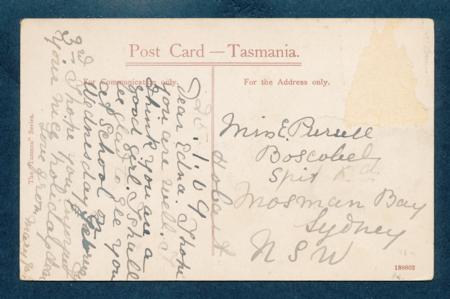 Post Card — Tasmania.
For Communication only.
For the Address only.
Hobart
20.1.09
Dear Edna. I hope
you are well. I
think you are a
good girl. I shall
be glad to see you
at School on
Wednesday
3rd I hope you enjoyed
your nice holiday
love from
Miss E. Purcell
Boscobel
Spit Rd.
Mosman Bay
Sydney
NSW
Series.
188602